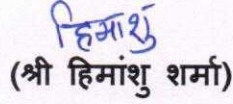 हिमांशु
(श्री हिमांशु शर्मा)